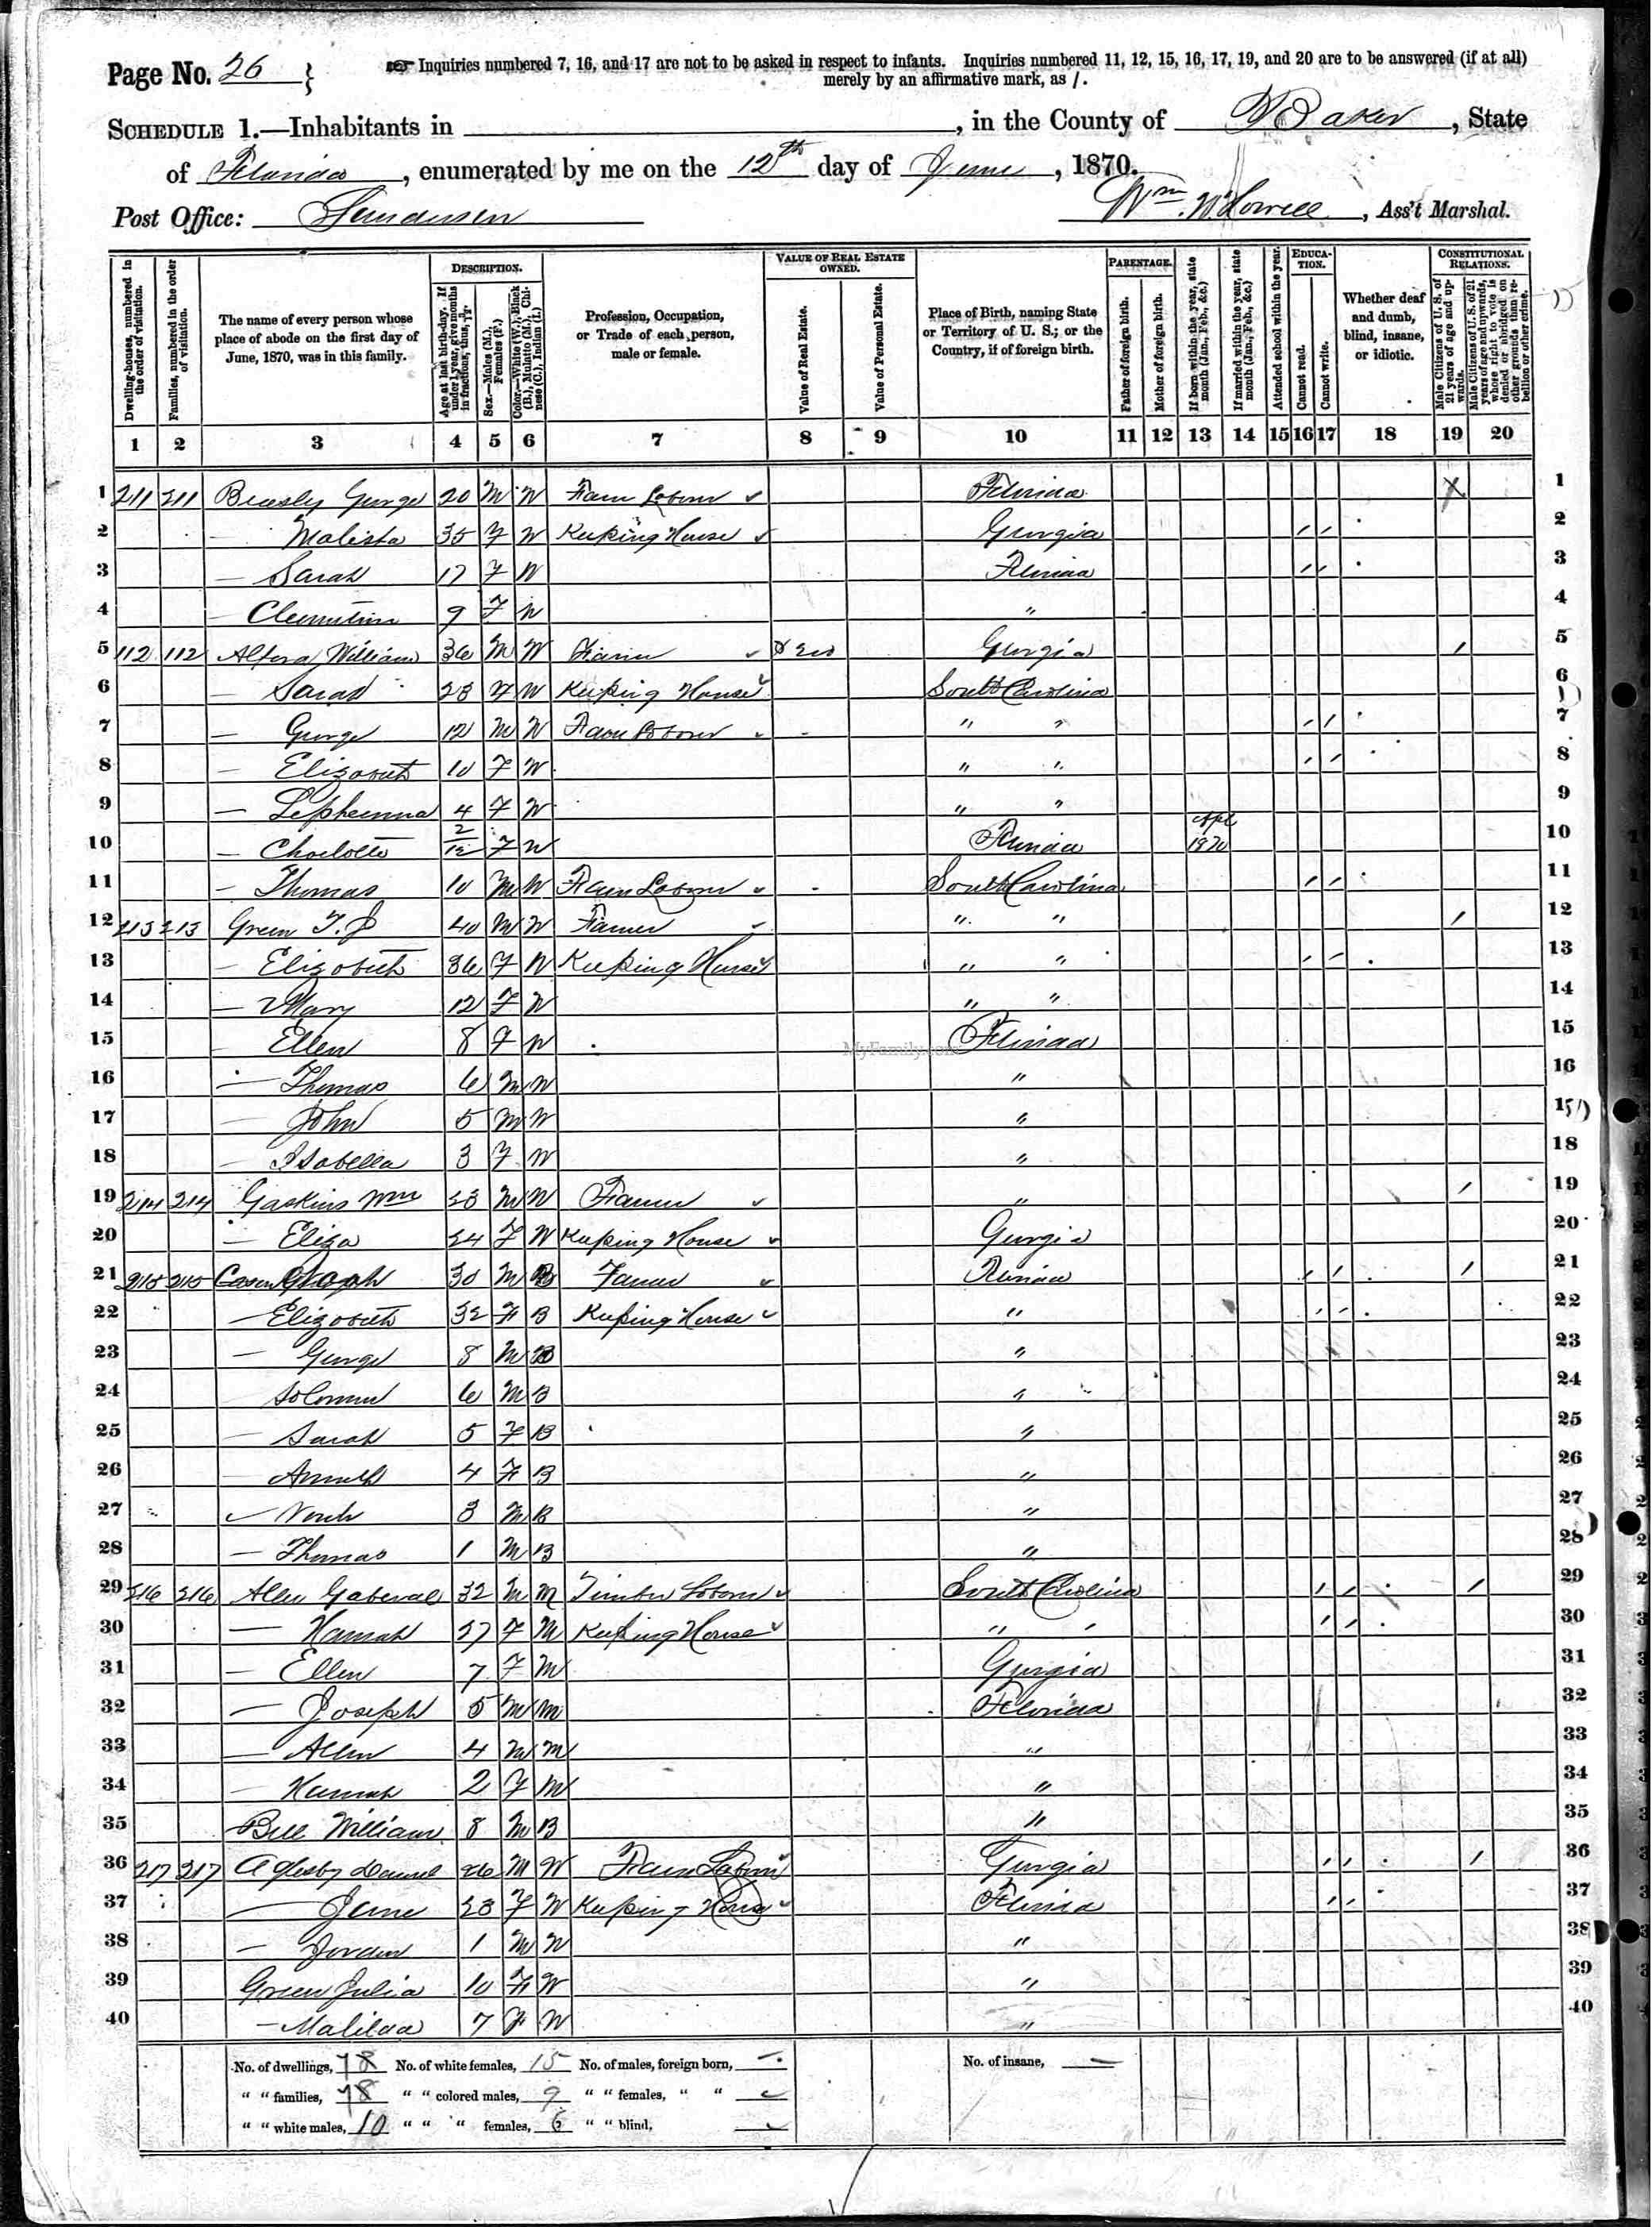 Page No. 26 }
Inquiries numbered 7, 16, and 17 are not to be asked in respect to infants. Inquiries numbered 11, 12, 15, 16, 17, 19, and 20 are to be answered (if at all)
merely by an affirmative mark, as /.
SCHEDULE 1.—Inhabitants in , in the County of Baker, State
of Florida, enumerated by me on the 12th day of June, 1870.
Post Office: Sanderson Wm. , Ass't Marshal.
Dwelling-houses, numbered in the order of visitation.
Families, numbered in the order of visitation.
The name of every person whose place of abode on the first day of June, 1870, was in this family.
DESCRIPTION.
Age at last birth-day. If under 1 year, give months in fractions, thus, 3/12.
Sex.—Males (M.), Females (F.)
Color.—White (W.), Black (B.), Mulatto (M.), Chinese (C.), Indian (I.)
Profession, Occupation, or Trade of each person, male or female.
VALUE OF REAL ESTATE OWNED.
Value of Real Estate.
Value of Personal Estate.
Place of Birth, naming State or Territory of U. S.; or the Country, if of foreign birth.
PARENTAGE.
Father of foreign birth.
Mother of foreign birth.
If born within the year, state month (Jan., Feb., &c.)
If married within the year, state month (Jan., Feb., &c.)
Attended school within the year.
EDUCATION.
Cannot read.
Cannot write.
Whether deaf and dumb, blind, insane, or idiotic.
CONSTITUTIONAL RELATIONS.
Male Citizens of U. S. of 21 years of age and upwards.
Male Citizens of U. S. of 21 years of age and upwards, whose right to vote is denied or abridged on other grounds than rebellion or other crime.
1 2 3 4 5 6 7 8 9 10 11 12 13 14 15 16 17 18 19 20
1 211 211 George 20 M W Farm Florida X 1
2 — Malista 35 F W Keeping House Georgia / / 2
3 — Sarah 17 F W Florida / / 3
4 — 9 F W " 4
5 112 112 William 36 M W Farmer Georgia / 5
6 — Sarah 28 F W Keeping House South Carolina 6
7 — George 12 M W Farm " " / / 7
8 — Elizabeth 10 F W " " / / 8
9 — 4 F W " " 9
10 — Charlotte 2/12 F W Florida Apl 1870 10
11 — Thomas 10 M W Farm South Carolina / / 11
12 213 213 Green T. J 40 M W Farmer " " / 12
13 — Elizabeth 36 F W Keeping House " " / / 13
14 — Mary 12 F W " " 14
15 — Ellen 8 F W Florida 15
16 — Thomas 6 M W " 16
17 — John 5 M W " 17
18 — Isabella 3 F W " 18
19 214 214 Gaskins Wm M W Farmer " / 19
20 — Eliza 24 F W Keeping House Georgia 20
21 215 215 30 M B Farmer Florida / / / 21
22 — Elizabeth 32 F B Keeping House " / / 22
23 — George 8 M B " 23
24 — 6 M B " 24
25 — Sarah 5 F B " 25
26 — 4 F B " 26
27 — 3 M B " 27
28 — Thomas 1 M B " 28
29 216 216 Allen 32 M M Timber South Carolina / / / 29
30 — Hannah 27 F M Keeping House " " / / 30
31 — Ellen 7 F M Georgia 31
32 — Joseph 5 M M Florida 32
33 — Allen 4 M M " 33
34 — Hannah 2 F M " 34
35 Bell William 8 M B " 35
36 217 217 Daniel 26 M W Farm Georgia / / / 36
37 — Jane F W Keeping House Florida / / 37
38 — Jordan 1 M W " 38
39 Green Julia 10 F W " 39
40 — Matilda 7 F W " 40
MyFamily.com
No. of dwellings, 8 No. of white females, 15 No. of males, foreign born, — No. of insane, —
" " families, 8 " " colored males, 9 " " females, " " —
" " white males, 10 " " " females, 6 " " blind, —